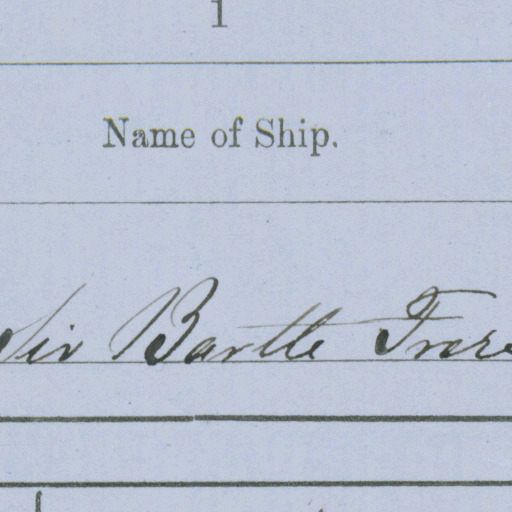 1
Name of Ship.
Sir Bartle Frere